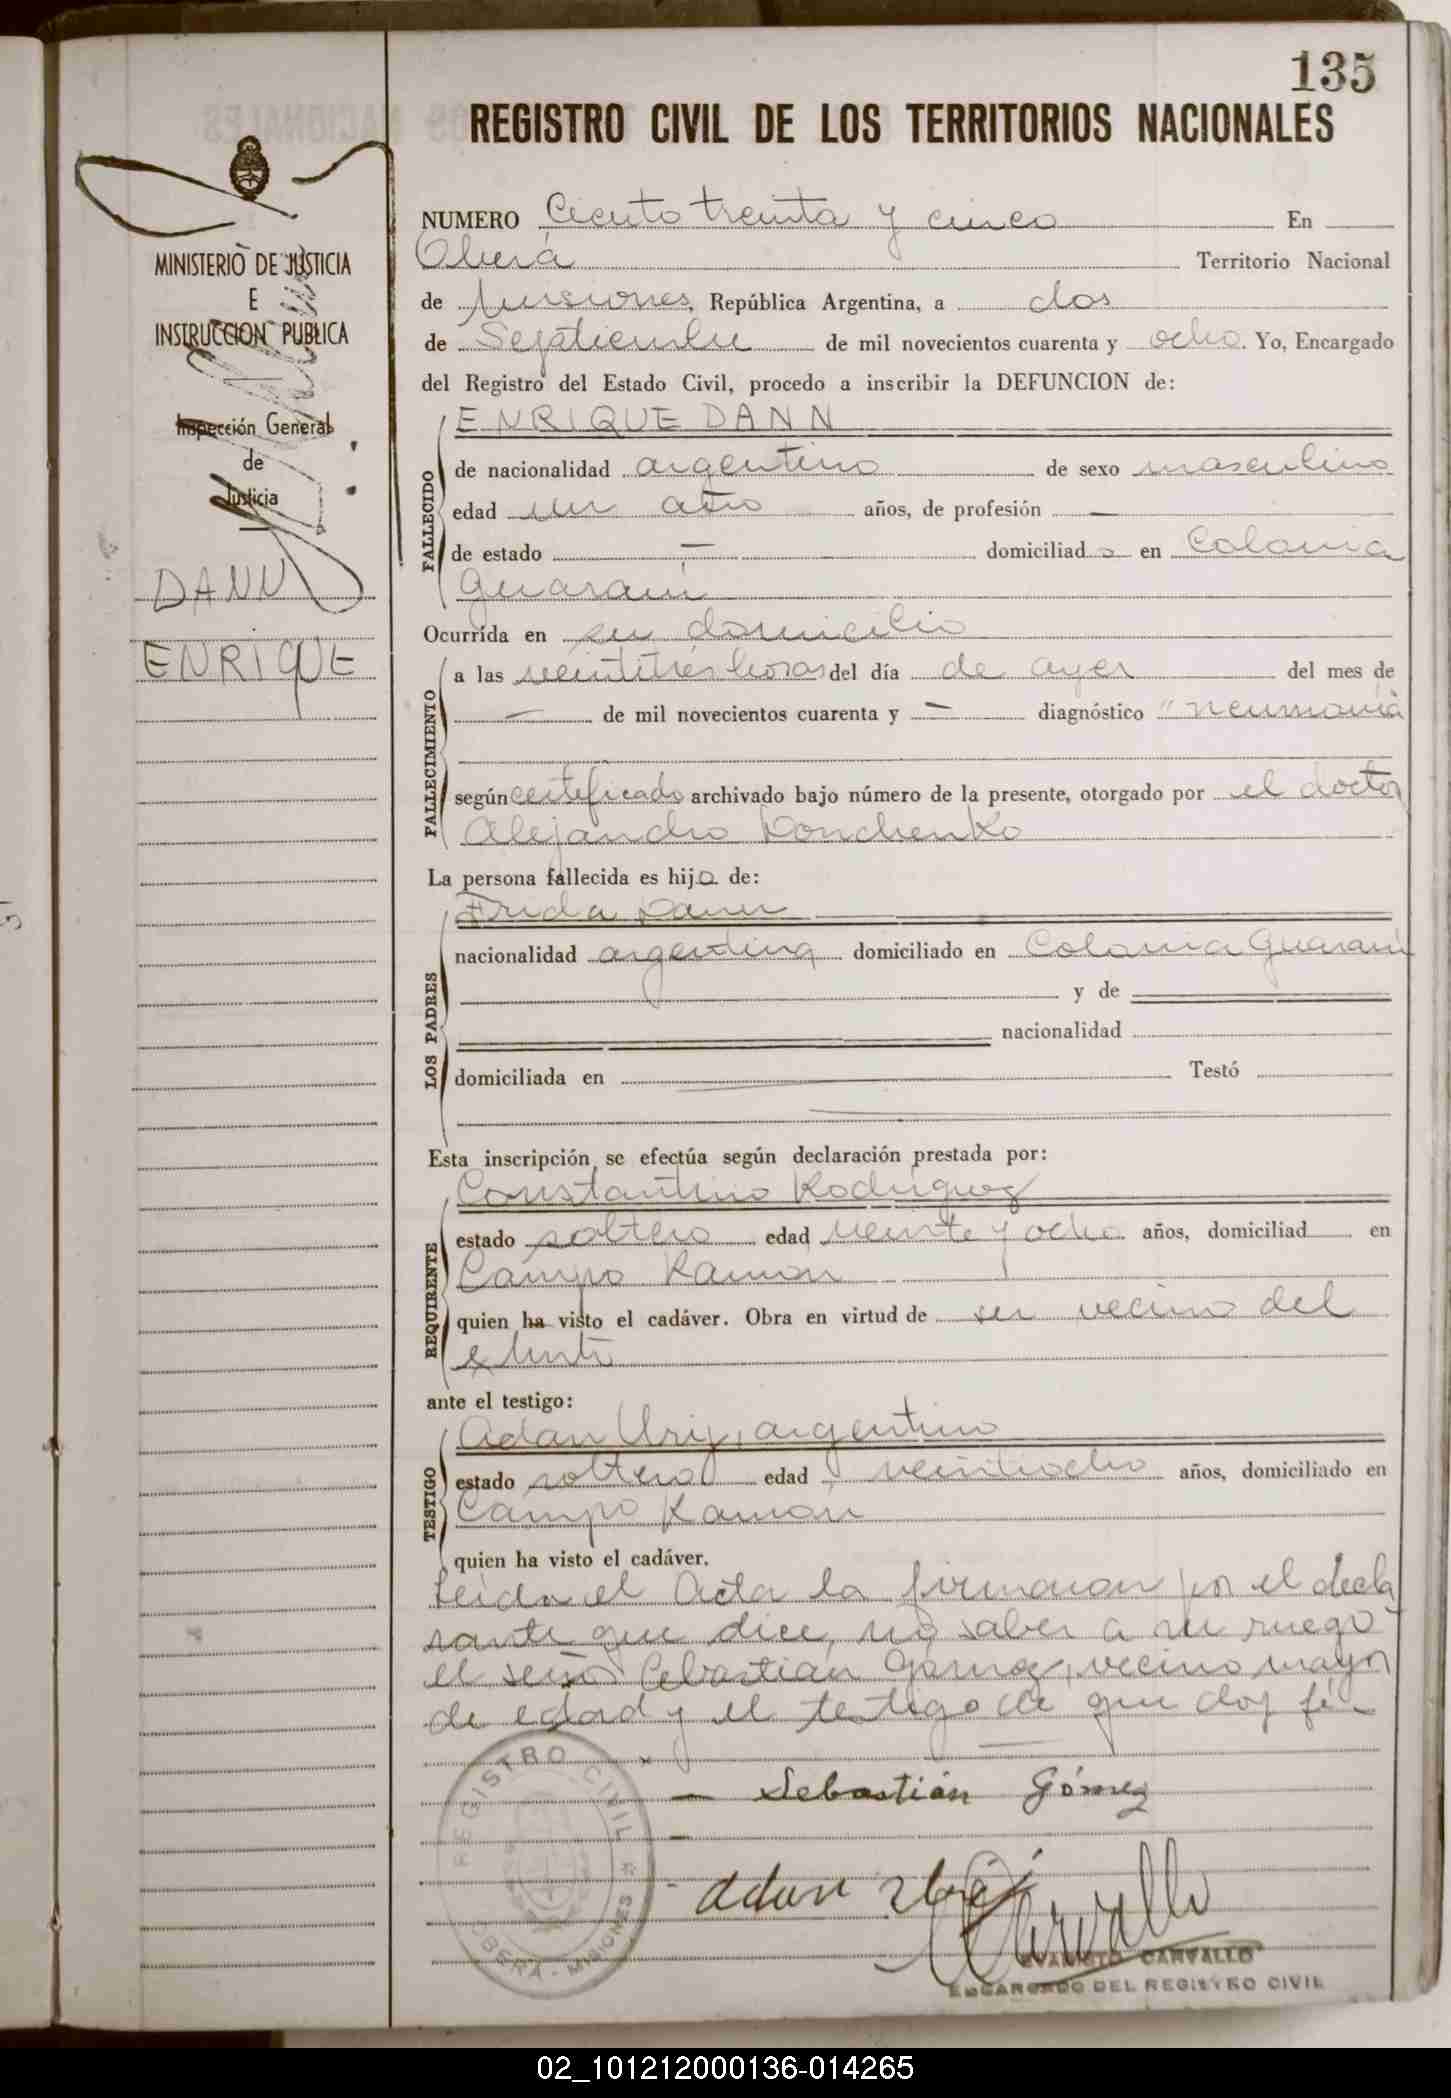 135
REGISTRO CIVIL DE LOS TERRITORIOS NACIONALES
MINISTERIO DE JUSTICIA
E
INSTRUCCION PUBLICA
Inspección General
de
Justicia
DANN
ENRIQUE
NUMERO Ciento treinta y cinco En
Oberá Territorio Nacional
de Misiones, República Argentina, a dos
de Septiembre de mil novecientos cuarenta y ocho. Yo, Encargado
del Registro del Estado Civil, procedo a inscribir la DEFUNCION de:
FALLECIDO
ENRIQUE DANN
de nacionalidad argentino de sexo masculino
edad un año años, de profesión —
de estado — domiciliado en Colonia
Guaraní
Ocurrida en su domicilio
FALLECIMIENTO
a las veintitrés horas del día de ayer del mes de
— de mil novecientos cuarenta y — diagnóstico "neumonía
según certificado archivado bajo número de la presente, otorgado por el doctor
Alejandro
La persona fallecida es hijo de:
LOS PADRES
Frida Dann
nacionalidad argentina domiciliado en Colonia Guaraní
y de
nacionalidad
domiciliada en Testó
Esta inscripción se efectúa según declaración prestada por:
REQUIRENTE
Constantino Rodriguez
estado soltero edad veinte y ocho años, domiciliad en
Campo Ramon
quien ha visto el cadáver. Obra en virtud de ser vecino del
extinto
ante el testigo:
TESTIGO
Adan argentino
estado soltero edad veintiocho años, domiciliado en
Campo Ramón
quien ha visto el cadáver.
Leida el Acta la firmaron por el decla
rante que dice no saber a su ruego
el señor Cebastián Gomez, vecino mayor
de edad y el testigo de que doy fé -
— Sebastián Gómez
- adan
REGISTRO CIVIL
OBERA - MISIONES
EVARISTO CARVALLO
ENCARGADO DEL REGISTRO CIVIL
02_101212000136-014265